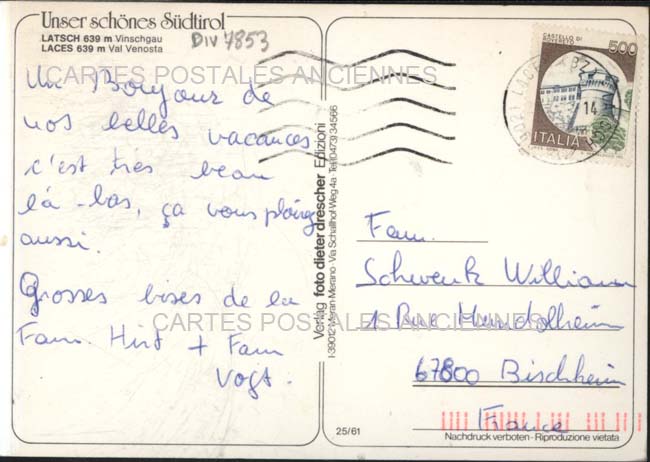 Unser schönes Südtirol
LATSCH 639 m Vinschgau
LACES 639 m Val Venosta
DIV 4853
CARTES POSTALES ANCIENNES
Un Bonjour de
nos belles vacances
c'est très beau
là-bas, ça vous plairait
aussi.
Grosses bises de la
Fam. Hirt + Fam
Vogt.
CARTES POSTALES ANCIENNES
Verlag foto dieter drescher Edizioni
I-39012 Meran Merano - Via Schallhof Weg 4a Tel (0473) 34566
CASTELLO DI
ROVERETO
500
ITALIA
14
Fam.
Schwenk William
1 Rue Mundolsheim
67800 Bischheim
France
25/61
Nachdruck verboten - Riproduzione vietata